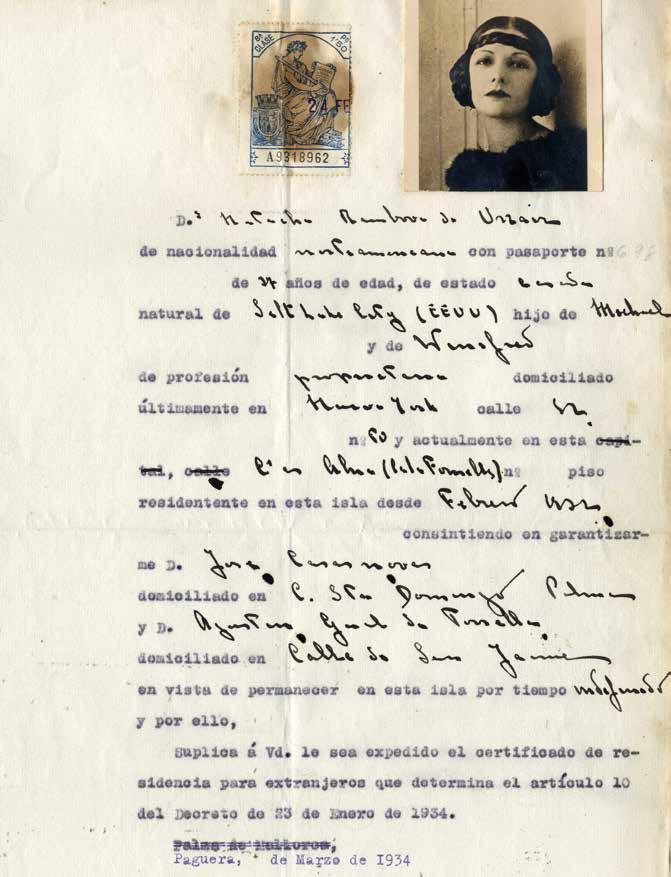 8ª CLASE
Pts 1'50
24 FE
A9318962
D.ª Natacha Rambova de Urzáiz
de nacionalidad norteamericana con pasaporte nº 698
de 37 años de edad, de estado casada
natural de Salt Lake City (EEUU) hijo de Michael
y de Winefred
de profesión propietaria domiciliado
últimamente en Nueva York calle 52
nº 60 y actualmente en esta capi-
tal, calle Cª es Alma (Cala Fornells) nº piso
residentente en esta isla desde Febrero 1932
consintiendo en garantizar-
me D. José Casasnovas
domiciliado en C. Sto Domingo Palma
y D. Agustin Gual de Torrella
domiciliado en Calle de San Jaime
en vista de permanecer en esta isla por tiempo indefinido
y por ello,
Suplica á Vd. le sea expedido el certificado de re-
sidencia para extranjeros que determina el artículo 10
del Decreto de 23 de Enero de 1934.
Palma de Mallorca,
Paguera, de Marzo de 1934